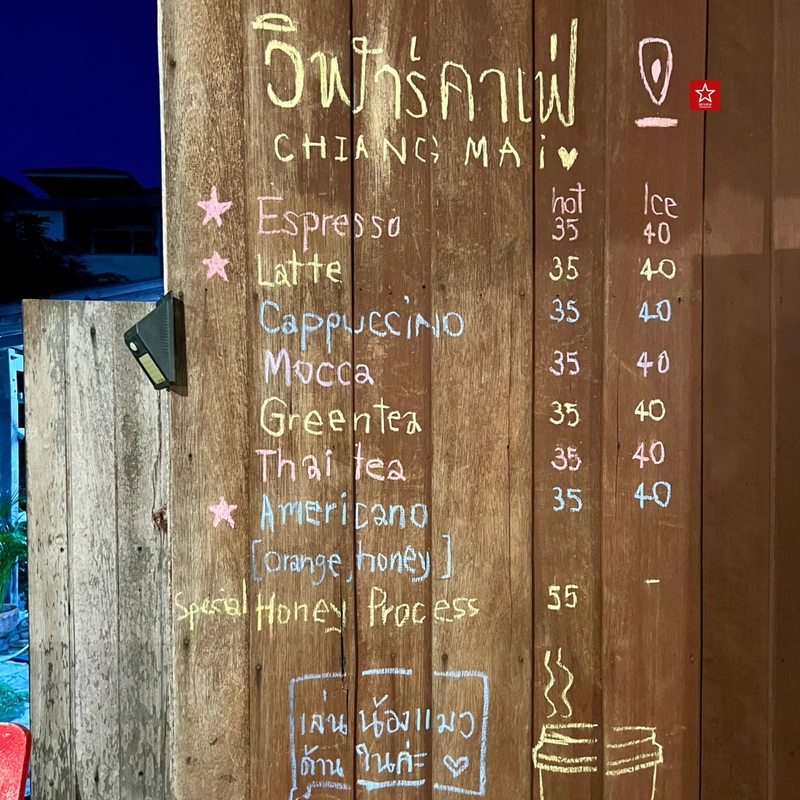 วิฬาร์คาเฟ่
CHIANG MAi
hot Ice
Espresso 35 40
Latte 35 40
Cappuccino 35 40
Mocca 35 40
Greentea 35 40
Thai tea 35 40
Americano 35 40
[orange, honey]
Special Honey Process 55 -
เล่นน้องแมว
ด้านในค่ะ